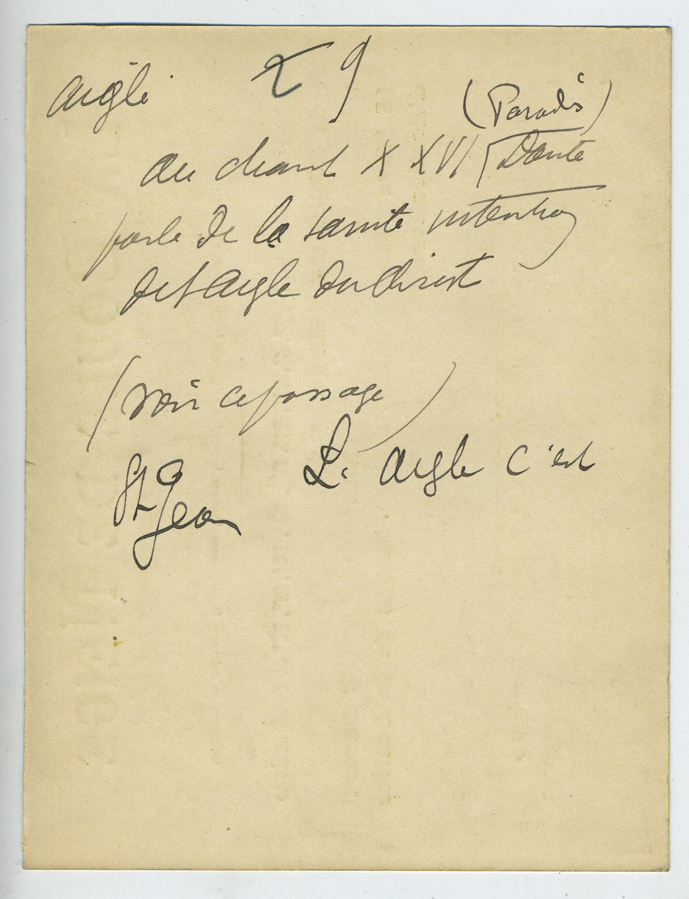 aigle 29
(Paradis)
au chant XXVI Dante
parle de la sainte intention
de l'aigle du Christ
(voir ce passage)
L'aigle c'est
St Jean